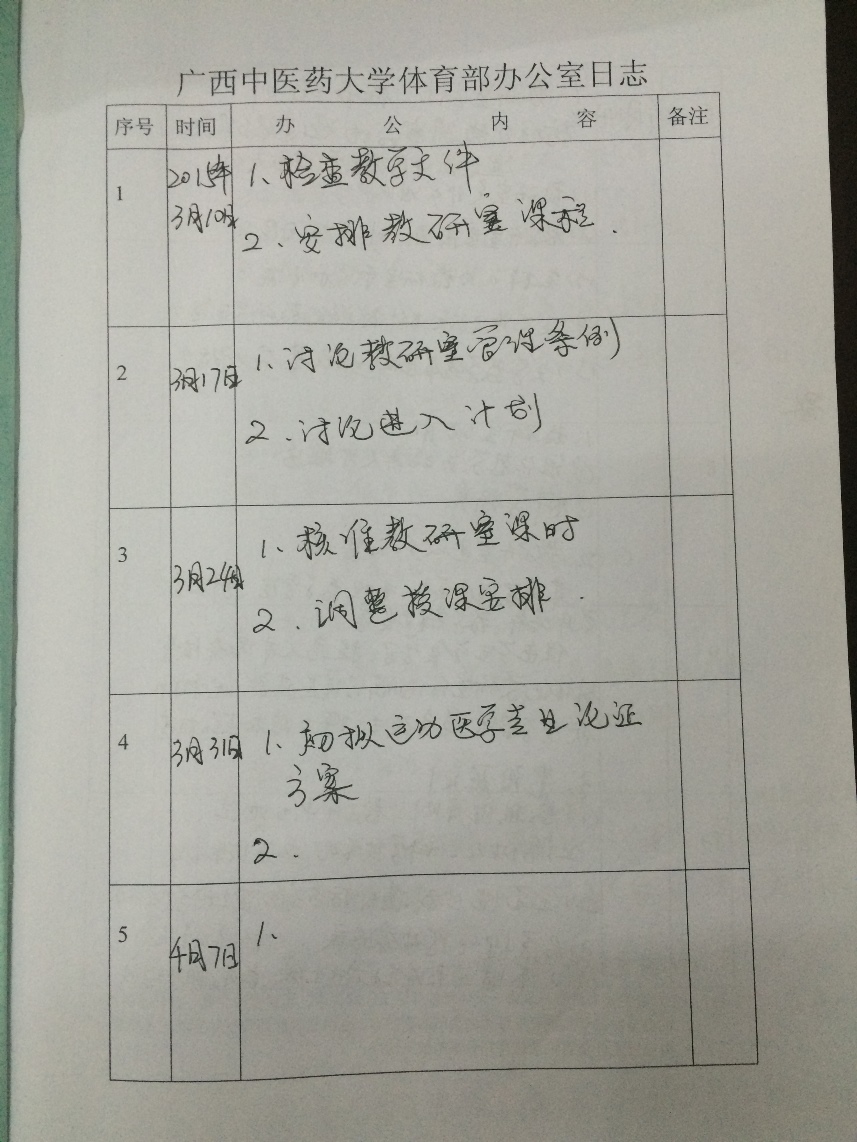 广西中医药大学体育部办公室日志
序号 时间 办公内容 备注
1 2015年3月10日 1、检查教学文件
2、安排教研室课程.
2 3月17日 1、讨论教研室管理条例
2、讨论进入计划
3 3月24日 1、核准教研室课时
2、调整授课安排.
4 3月31日 1、初拟运动医学专业论证
方案
2.
5 4月7日 1、